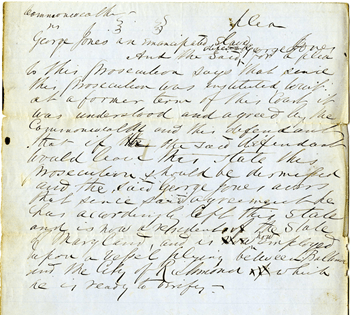 Commonwealth
vs } Plea
George Jones an emancipated Slave
And the said George Jones for a plea
to this prosecution says that since
this prosecution was instituted wait:
at a former term of this Court, it
was understood and agreed by the
Commonwealth and this defendant
that if he the said defendant
would leave this State this
prosecution should be dismissed
and the said George Jones avers
that since said agreement he
has accordingly left this State
and is now a resident of the State
of Maryland, and is now employed
upon a vessel plying between Baltimore
and the City of Richmond which
he is ready to verify -